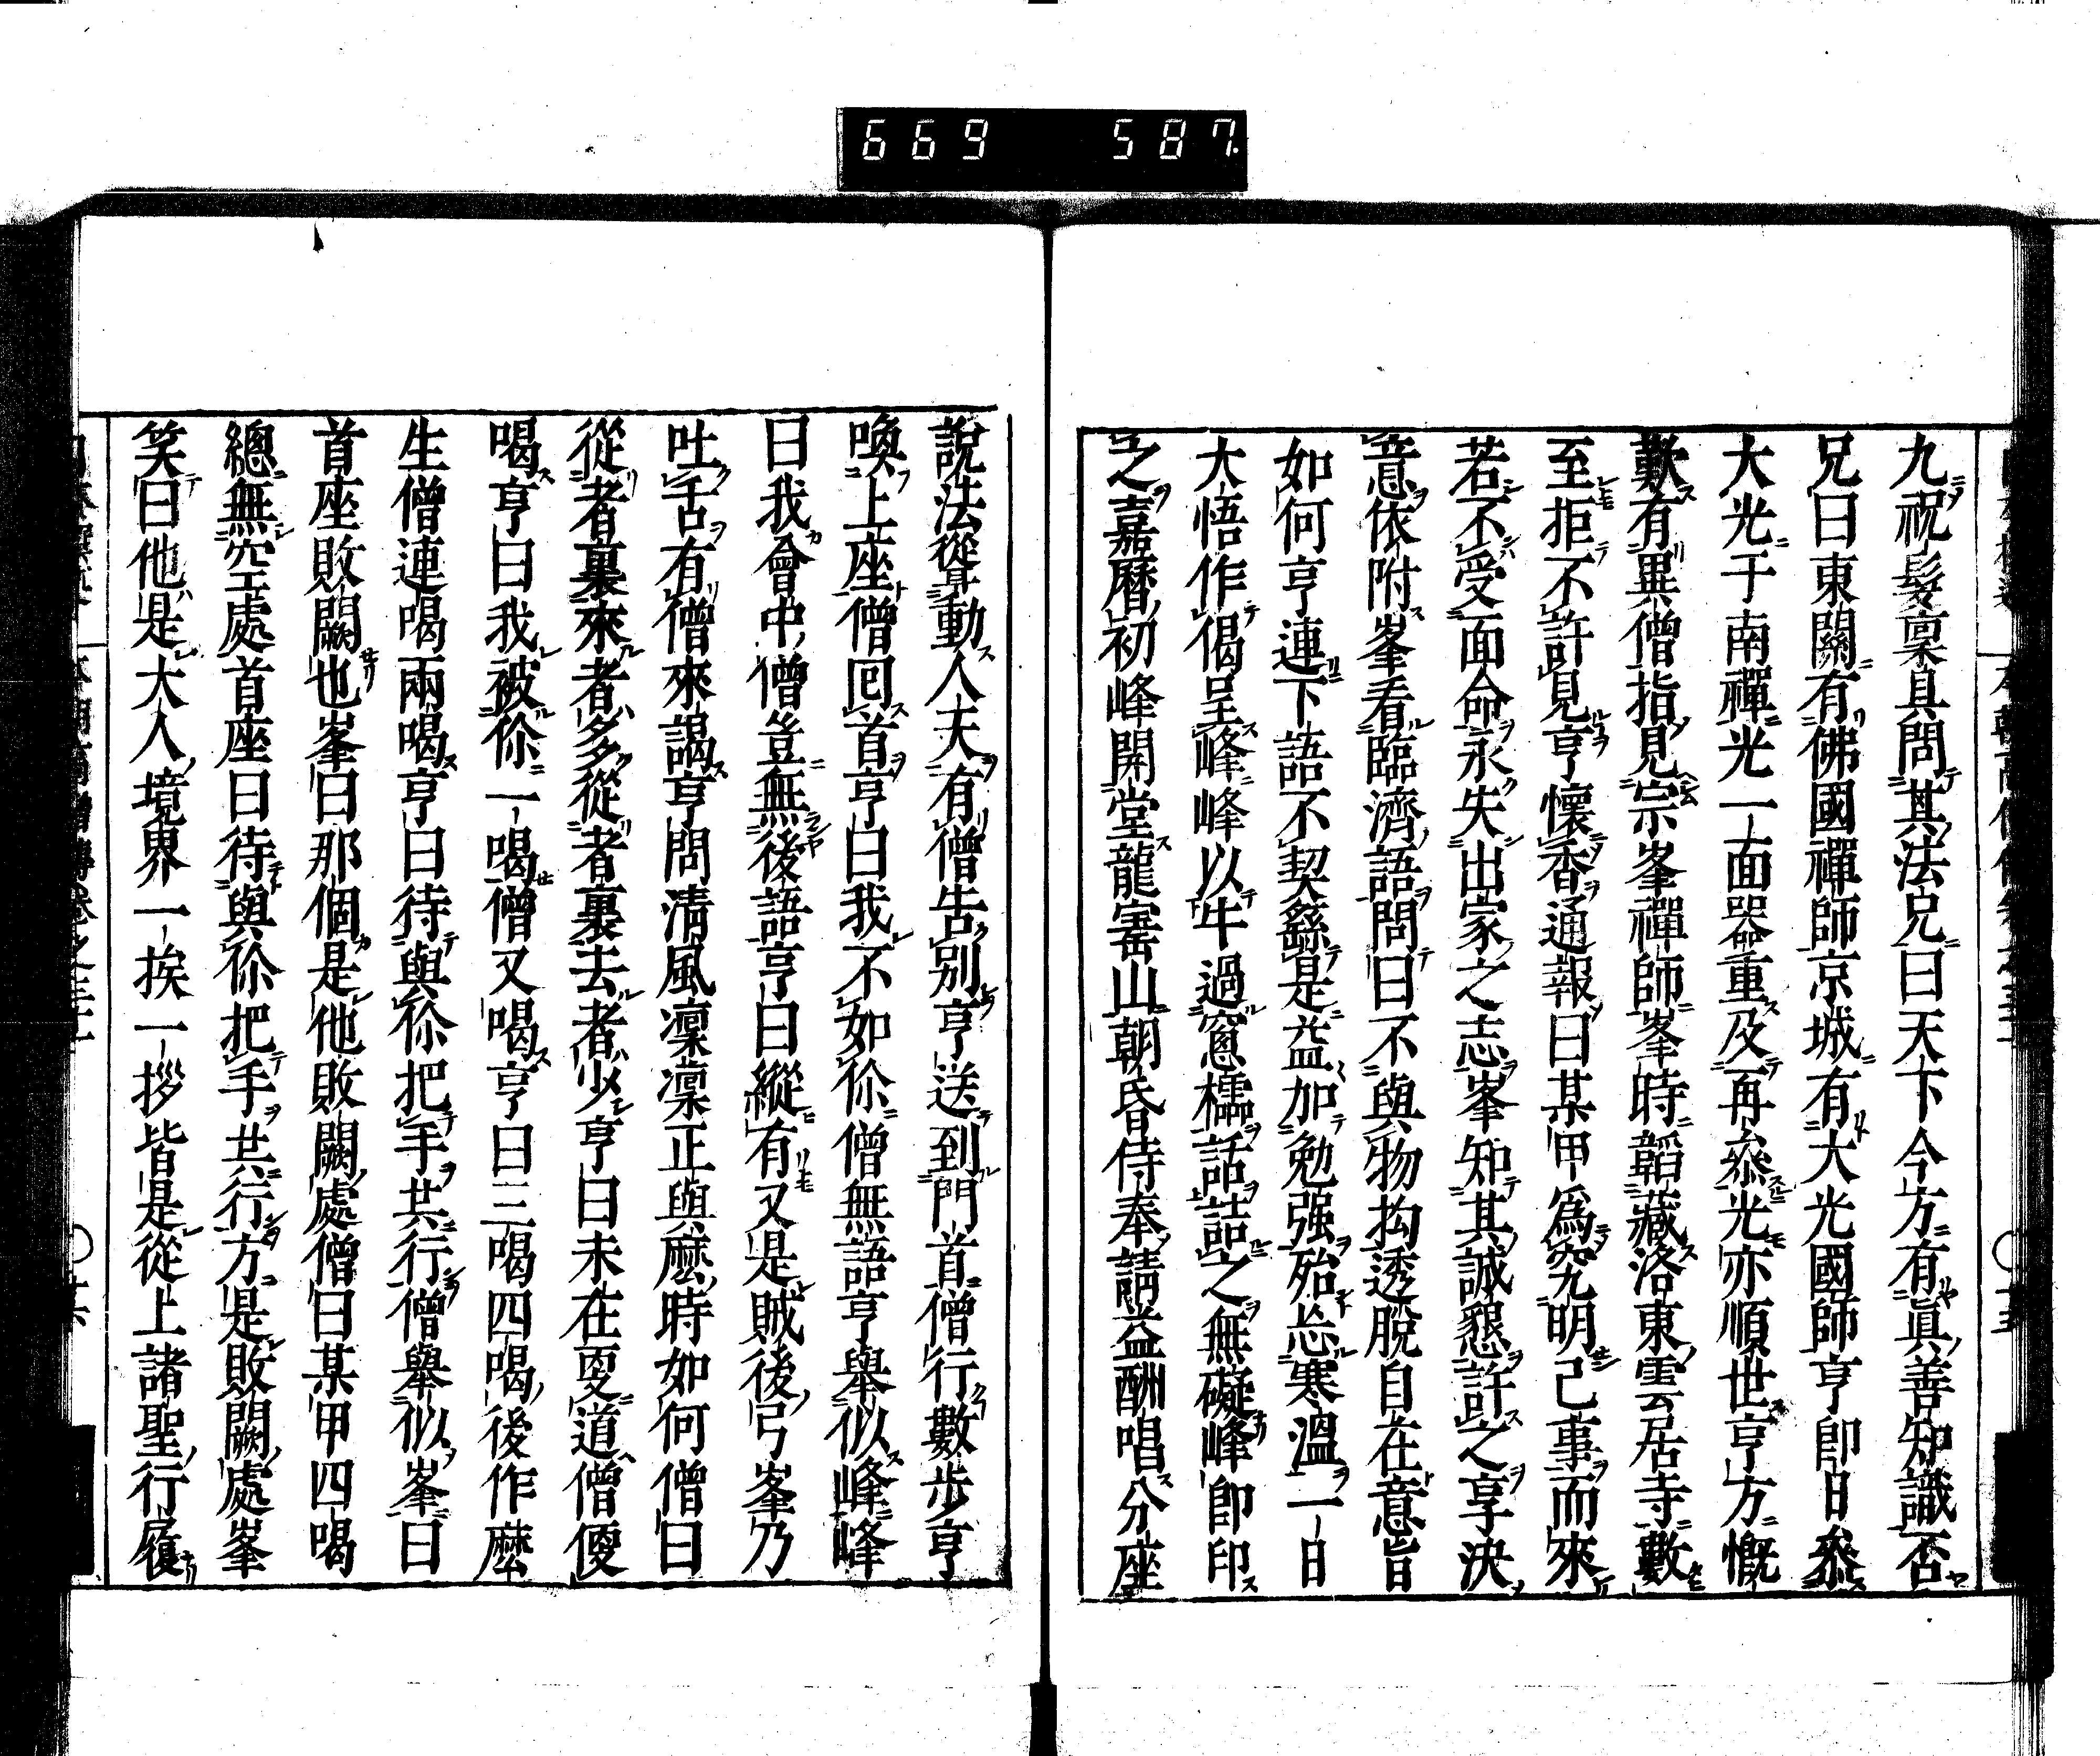 669 587.
九祝髮稟具問其法兄曰天下今方有眞善知識否
兄曰東關有佛國禪師京城有大光國師亨卽日參
大光于南禪光一面器重及再參光亦順世亨方慨
歎有異僧指見宗峯禪師峯時韜藏洛東雲居寺數
至拒不許見亨懷香通報曰某甲爲究明己事而來
若不受面命永失出家之志峯知其誠懇許之享決
意依附峯看臨濟語問曰不與物拘透脫自在意旨
如何亨連下語不契繇是益加勉强殆忘寒溫一日
大悟作偈呈峰峰以牛過窻櫺話詰之無礙峰卽印
之嘉曆初峰開堂龍寶山朝昏侍奉請益酬唱分座
說法聳動人天有僧告別亨送到門首僧行數步亨
喚上座僧回首亨曰我不如你僧無語亨舉似峰峰
曰我會中僧豈無後語亨曰縱有又是賊後弓峯乃
吐舌有僧來謁亨問淸風凜凜正與麼時如何僧曰
從者裏來者多從者裏去者少亨曰未在更道僧便
喝亨曰我被你一喝僧又喝亨曰三喝四喝後作麼
生僧連喝兩喝亨曰待與你把手共行僧舉似峯曰
首座敗闕也峯曰那個是他敗闕處僧曰某甲四喝
總無空處首座曰待與你把手共行方是敗闕處峯
笑曰他是大人境界一挨一拶皆是從上諸聖行履